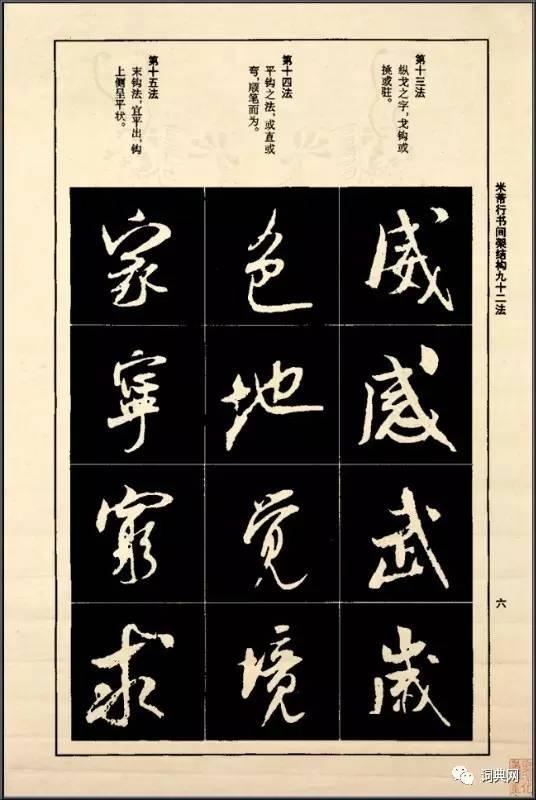 米芾行书间架结构九十二法
第十三法
纵戈之字，戈钩或
挑或驻。
威
感
武
岁
第十四法
平钩之法，或直或
弯，顺笔而为。
色
地
觉
境
第十五法
末钩法，宜平出，钩
上侧呈平状。
家
宁
穷
求
六
词典网